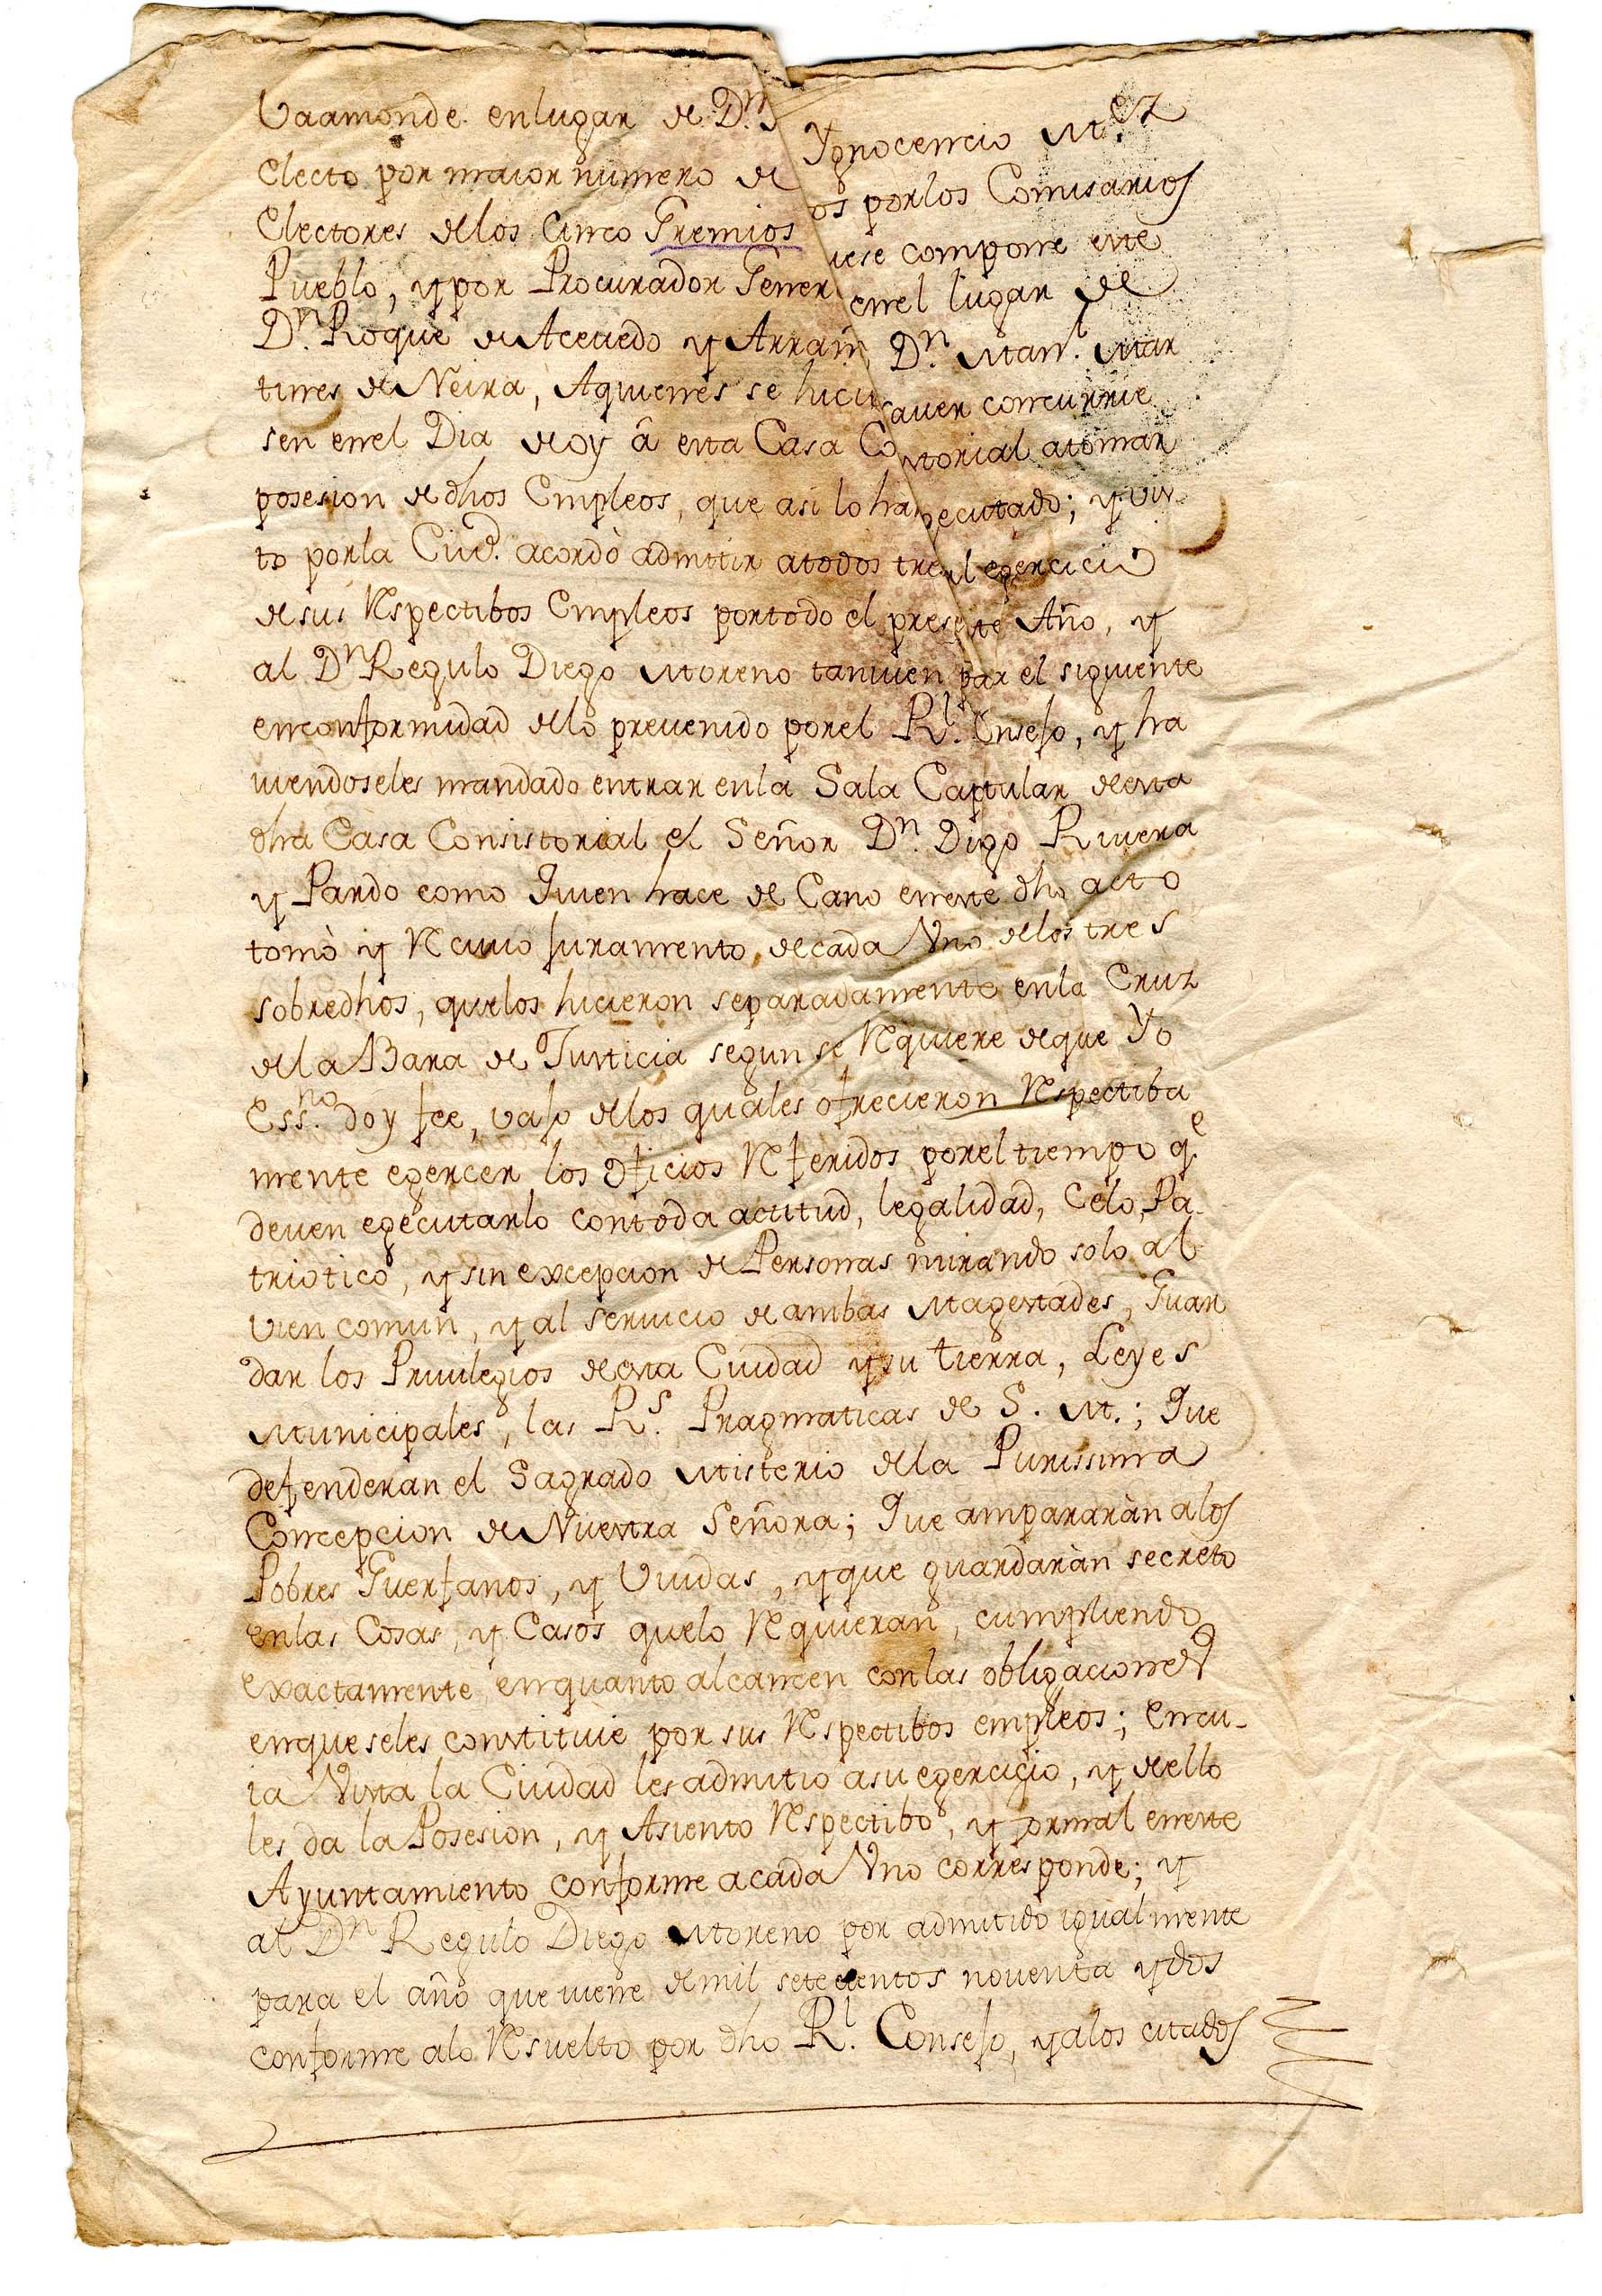 Vaamonde enlugar de Dn. Ygnocencio Mrez
Electo por maior numero de os porlos Comisarios
Electores dlos Cinco Gremios uese compone este
Pueblo, y por Procurador Gener enel lugar de
Dn. Roque de Acevedo y Arrain, Dn. Manl. Mar
tines de Neira, Aquienes se hici saver concurrie
sen enel Dia deoy â esta Casa Co storial atomar
posesion de dhos Empleos, que asi lo han ecutado; y vis
to porla Ciud. acordò admitir atodos tre l egercicio
desus Respectibos Empleos portodo el presente Año, y
al Dn Regulo Diego Moreno tamvien par el siguiente
enconformidad dlo prevenido porel Rl. Cnsejo, y ha
viendoseles mandado entrar enla Sala Captular desta
dha Casa Consistorial el Señor Dn. Digo Rivera
y Pardo como Quien hace de Cano eneste dho acto
tomò y Recivio juramento, decada Vno dlos tres
sobredhos, quelos hicieron separadamente enla Cruz
dla Bara de Justicia segun se Requiere deque Yo
Essno. doy fee, vajo dlos quales ofrecieron Respectiba
mente egercer los oficios Referidos porel tiempo qe.
deven egecutarlo contoda actitud, legalidad, Celo, Pa
triotico, y sin excepcion de Personas mirando solo al
vien comun, y al servicio de ambas Magestades, Guar
dar los Privilegios desta Ciudad y su tierra, Leyes
Municipales, las Rs. Pragmaticas de S. M.; Que
defenderan el Sagrado Misterio dla Purissima
Concepcion de Nuestra Señora; Que ampararàn alos
Pobres Guerfanos, y Viudas, y que guardaràn secreto
enlas Cosas, y Casos quelo Requieran, cumpliendo
exactamente enquanto alcancen conlas obligaciones
enqueseles constituie por sus Respectibos empleos; encu-
ia Vista la Ciudad les admitio asu egercicio, y dello
les da la Posesion, y Asiento Respectibo, y formal eneste
Ayuntamiento conforme acada Vno corresponde; y
al Dn Regulo Diego Moreno por admitido igualmente
para el año que viene demil setecientos noventa ydos
conforme alo Resuelto por dho Rl. Consejo, yalos citados